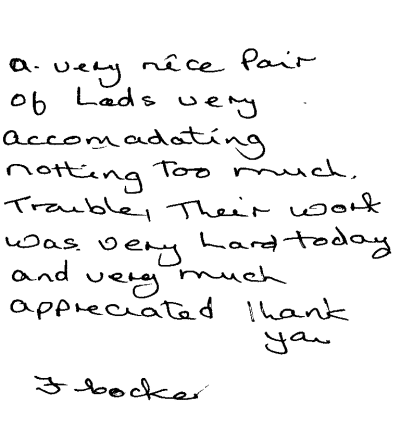 a. very nice Pair
of Lads very
accomadating
notting Too much.
Trouble, Their work
was very hard today
and very much
appreciated Thank
you
F bocker